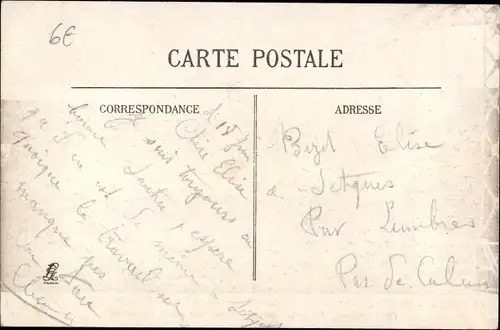 6€
CARTE POSTALE
CORRESPONDANCE
ADRESSE
le 15 Juin
Chère Elise
Je suis toujours en
bonne Santée j'espere
qu'il en est de même
quoique le travail ne
manque pas
Bizet Elise
a Setques
Par Lumbres
Pas de Calais